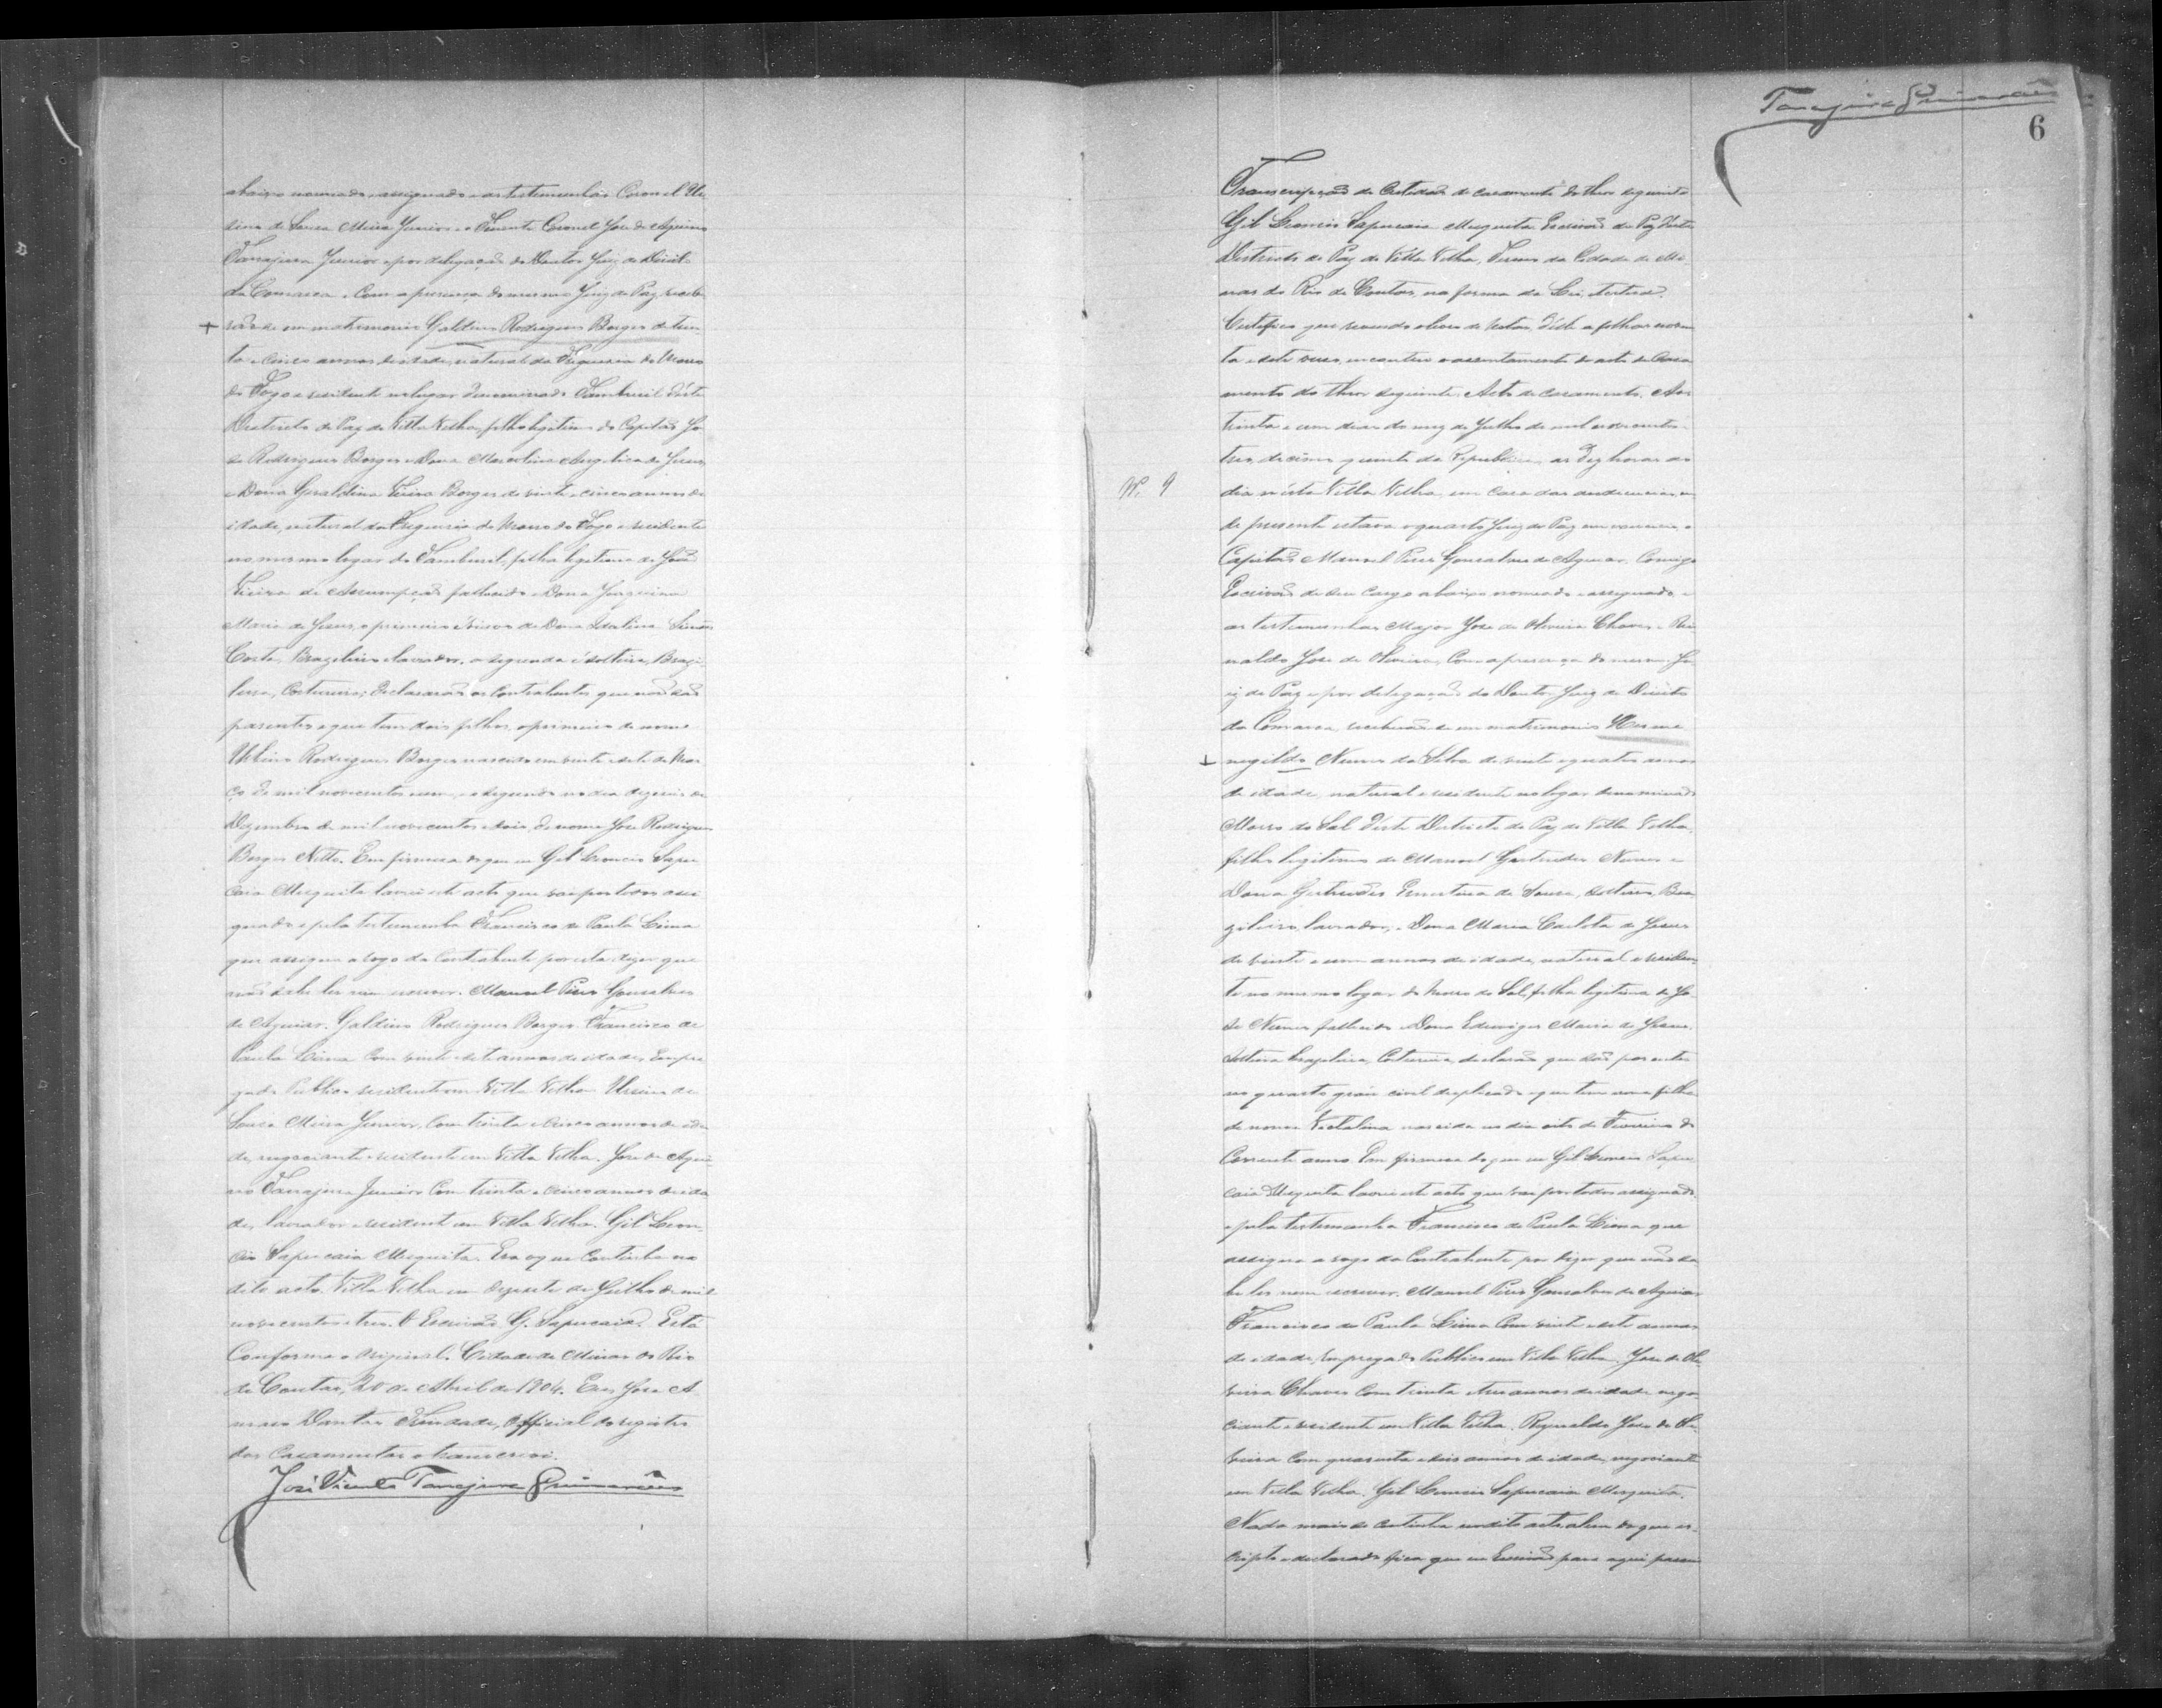 abaixo nomeado e assignado e as testemunhas Coronel Ur-
sino de Souza Meira Junior e o Tenente Coronel José de Aquino
Tanajura Junior e por delegação do Doutor Juiz de Direito
da Comarca e com a presença do mesmo Juiz de Paz recebe-
rão-se em matrimonio Galdino Rodrigues Borges de trin-
ta e cinco annos de idade, natural da Freguezia do Morro
do Fogo e residente no lugar denominado Tamburil d'este
Districto de Paz de Villa Velha, filho legitimo do Capitão Jo-
sé Rodrigues Borges e Dona Marcelina Angelica de Jesus,
e Dona Geraldina Vieira Borges de vinte e cinco annos de
idade, natural da Freguezia do Morro do Fogo e residente
no mesmo logar do Tamburil, filha legitima de João
Vieira de Assumpção fallecido e Dona Joaquina
Maria de Jesus, o primeiro viuvo de Dona Idalina
Costa, Brazileiro e lavrador, a segunda é solteira, Brazi-
leira, Costureira; declararão os contrahentes que não são
parentes e que tem dois filhos, o primeiro de nome
Ursino Rodrigues Borges nascido em vinte e sete de Mar-
ço de mil novecentos e um, e o segundo no dia de
Dezembro de mil novecentos e dois, de nome José Rodrigues
Borges Netto. Em firmeza do que eu Gil Leoncio Sapu-
caia Mesquita lavrei este acto que vae por todos assi-
gnado e pela testemunha Francisco de Paula Lima
que assigna a rogo da contrahente por esta dizer que
não sabe ler nem escrever. Manoel Pires Gonsalves
de Aguiar. Galdino Rodrigues Borges. Francisco de
Paula Lima com vinte e sete annos de idade, Empre-
gado Publico residente em Villa Velha. Ursino de
Souza Meira Junior, com trinta e cinco annos de ida-
de, negociante e residente em Villa Velha. José de Aqui-
no Tanajura Junior com trinta e cinco annos de ida-
de, lavrador e residente em Villa Velha. Gil Leon-
cio Sapucaia Mesquita. Era o que continha no
dito acto. Villa Velha em dezesete de Julho de mil
novecentos e tres. O Escrivão G. Sapucaia. Está
Conforme o original. Cidade de Minas do Rio
de Contas, 20 de Abril de 1904. Eu, José A-
maro Dantas Trindade, Official do registro
dos Casamentos o transcrevi.
José Vicente Tanajura Guimarães
Tanajura Guimarães
6
Transcripção da Certidão de casamento do theor seguinte
Gil Leoncio Sapucaia Mesquita Escrivão de Paz d'este
Districto de Paz de Villa Velha, Termo da Cidade de Mi-
nas do Rio de Contas, na forma da Lei, etc.
Certifico que revendo o livro de notas d'este a folhas
ta e sete verso, encontrei o assentamento do acto de Casa-
mento do theor seguinte. Acto de casamento. Aos
trinta e um dias do mez de Julho de mil novecentos e
tres, decimo quinto da Republica, as dez horas do
N. 9
dia n'esta Villa Velha, em casa das audiencias, on-
de presente estava o quarto Juiz de Paz em exercicio o
Capitão Manoel Pires Gonsalves de Aguiar, Comigo
Escrivão de seu cargo abaixo nomeado e assignado, e
as testemunhas Major José de Oliveira Chaves e Rei-
naldo José de Oliveira, com a presença do mesmo Ju-
iz de Paz e por delegação do Doutor Juiz de Direito
da Comarca receberão-se em matrimonio Herme-
negildo Nunes da Silva de vinte e quatro annos
de idade, natural e residente no logar denominado
Morro do Sal d'este Districto de Paz de Villa Velha,
filho legitimo de Manoel Nunes e
Dona Gertrudes Ernestina de Souza, solteiro, Bra-
zileiro, lavrador, e Dona Maria Carlota de Jesus
de vinte e um annos de idade, natural e residen-
te no mesmo logar do Morro do Sal, filha legitima de Jo-
sé Nunes fallecido e Dona Edwiges Maria de Jesus.
Solteira brazileira, Costureira, declarão que são parentes
no quarto gráu civil duplicado e que tem uma filha
de nome Victalina nascida no dia oito de Fevereiro do
Corrente anno. Em firmeza do que eu Gil Leoncio Sapu-
caia Mesquita lavrei este acto que vae por todos assignado
e pela testemunha Francisco de Paula Lima que
assigna a rogo da contrahente, por dizer que não sa-
be ler nem escrever. Manoel Pires Gonsalves de Aguiar
Francisco de Paula Lima com vinte e sete annos
de idade, Empregado Publico em Villa Velha. José de Oli-
veira Chaves com trinta e tres annos de idade nego-
ciante e residente em Villa Velha. Reynaldo José de Oli-
veira com quarenta e seis annos de idade, negociante
em Villa Velha. Gil Leoncio Sapucaia Mesquita.
Nada mais se continha no dito acto alem do que es-
cripto e declarado fica que eu Escrivão para aqui passei